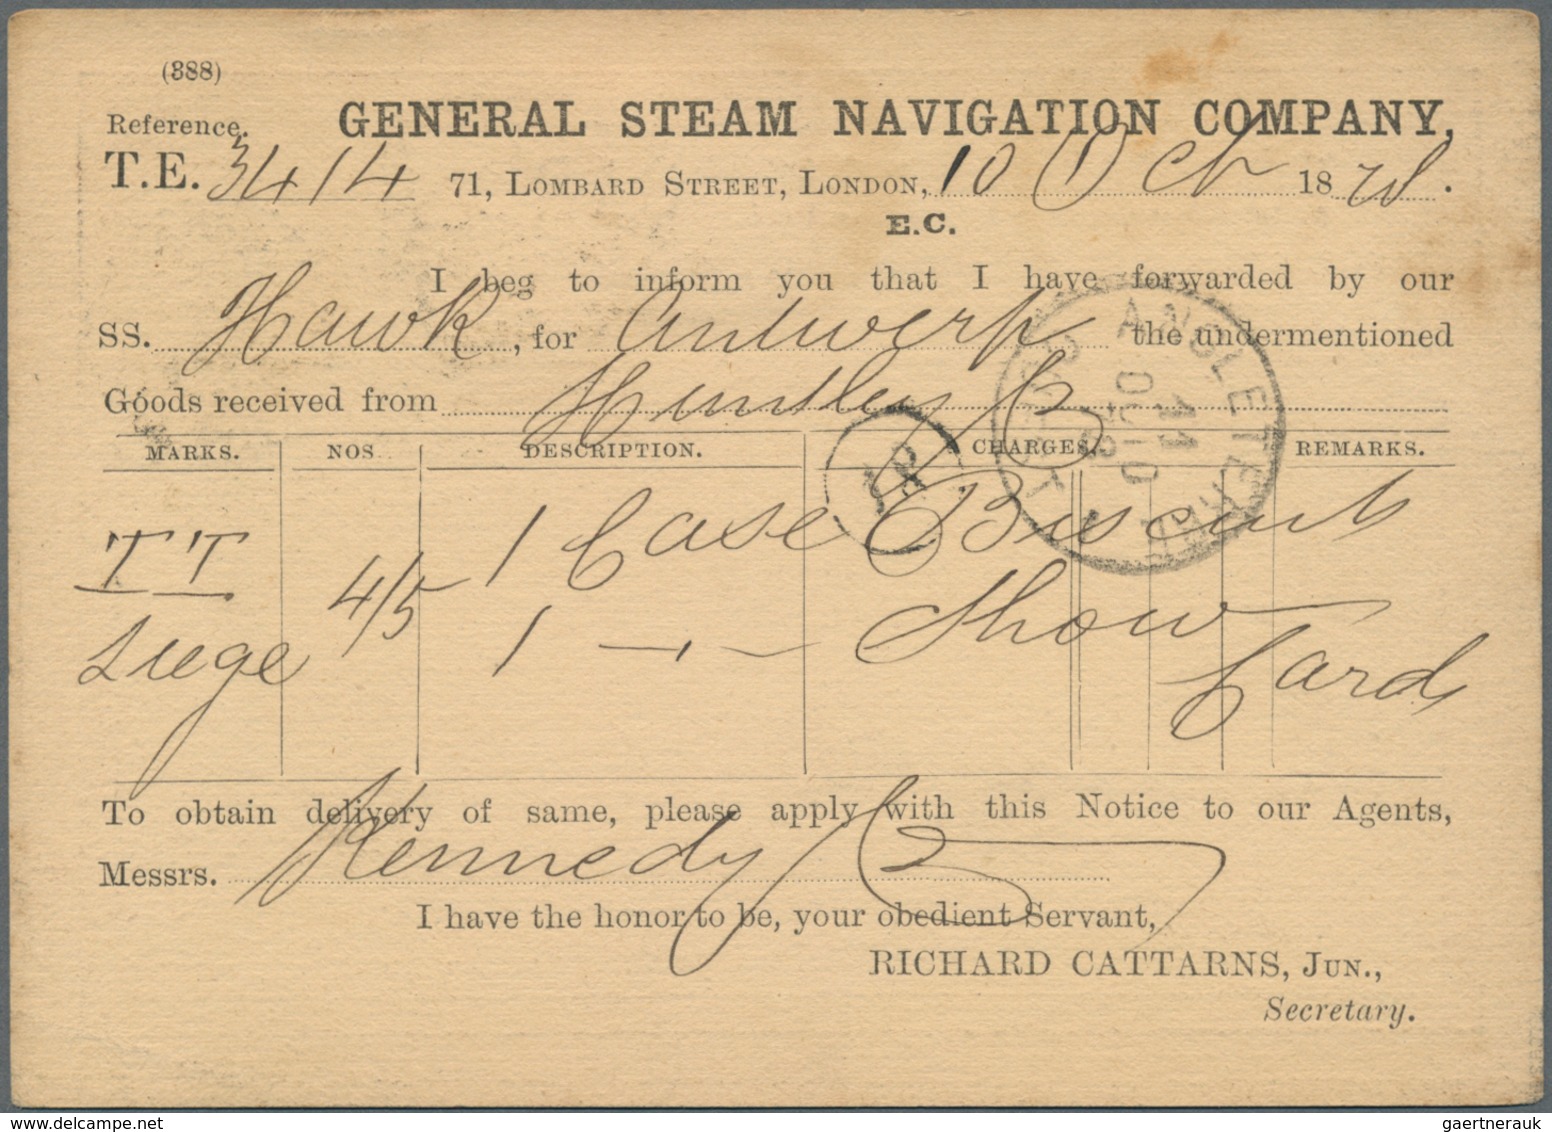 (388)
Reference.
GENERAL STEAM NAVIGATION COMPANY,
T.E. 3414 71, LOMBARD STREET, LONDON, 10 Oct 1878.
E.C.
I beg to inform you that I have forwarded by our
SS. Hawk, for Antwerp the undermentioned
Goods received from Huntley
MARKS. NOS DESCRIPTION. CHARGES. REMARKS.
TT 4/5 1 Case Biscuits
Liege 1 — " — Show
Cards
ANGLETERRE
11
OCT
To obtain delivery of same, please apply with this Notice to our Agents,
Messrs. Kennedy
I have the honor to be, your obedient Servant,
RICHARD CATTARNS, JUN.,
Secretary.
gaertnerauk @ delcampe.net